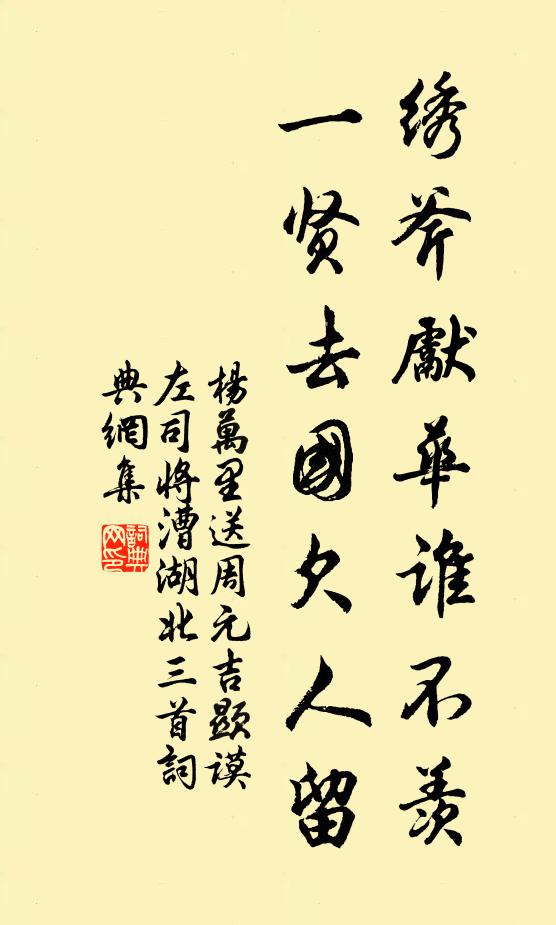 绣斧獻華谁不羨
一贤去國欠人留
楊萬里送周元吉顯謨
左司将漕湖北三首詞
典網集
詞典網印